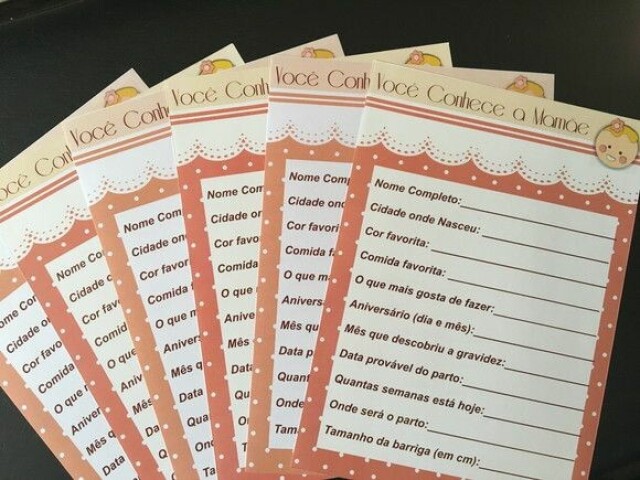 Você Conhece a Mamãe
Nome Completo:
Cidade onde Nasceu:
Cor favorita:
Comida favorita:
O que mais gosta de fazer:
Aniversário (dia e mês):
Mês que descobriu a gravidez:
Data provável do parto:
Quantas semanas está hoje:
Onde será o parto:
Tamanho da barriga (em cm):
Você Conh
Nome Comple
Cidade onde
Cor favorita:
Comida favo
O que mais
Aniversário
Mês que
Data pro
Quanta
Onde
Taman
Você Conh
Nome Com
Cidade ond
Cor favorit
Comida
O que m
Anivers
Mês q
Data
Quan
Onde
Tama
Você Conh
Nome Comp
Cidade ond
Cor favorit
Comida fa
O que ma
Anivers
Mês q
Data
Quan
Onde
Tama
Você Con
Nome Co
Cidade
Cor fav
Comida
O que
Aniver
Mês q
Data
Você Con
Nome C
Cidade o
Cor favo
Comida
O que
Aniver
Mês
Data